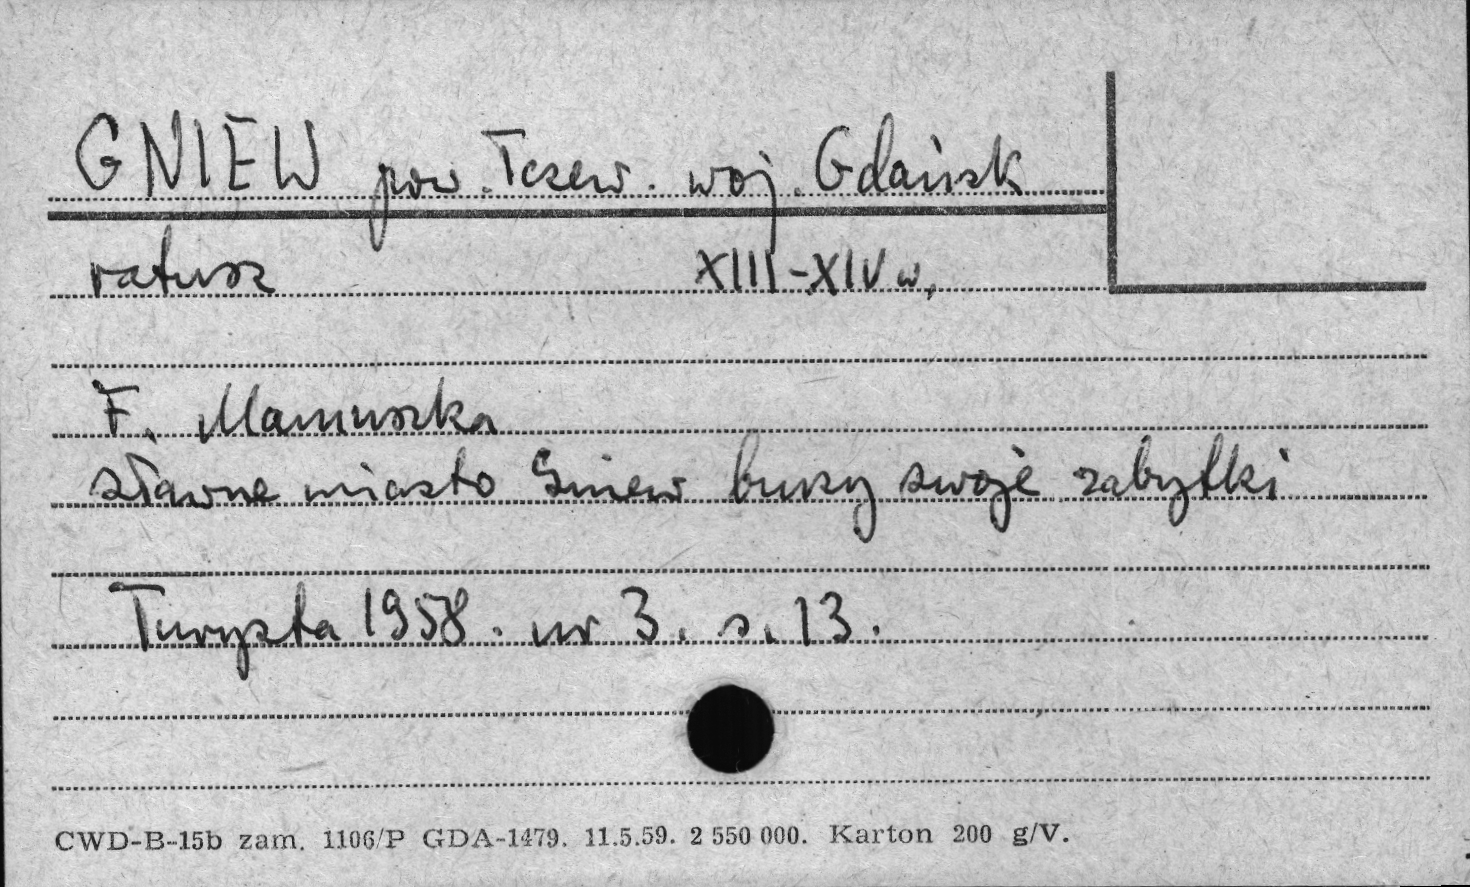 GNIEW pow. Tczew. woj. Gdańsk
ratusz XIII-XIV w.
F. Mamuszka
sławne miasto Gniew burzy swoje zabytki
Turysta 1958. nr 3. s. 13.
CWD-B-15b zam. 1106/P GDA-1479. 11.5.59. 2 550 000. Karton 200 g/V.